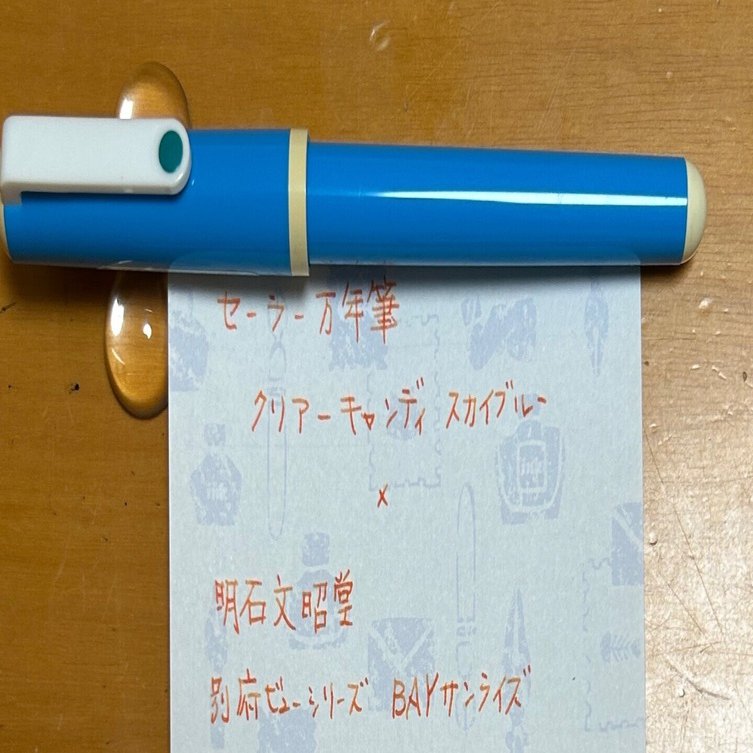 セーラー万年筆
クリアーキャンディ スカイブルー
×
明石文昭堂
別府ビューシリーズ BAYサンライズ